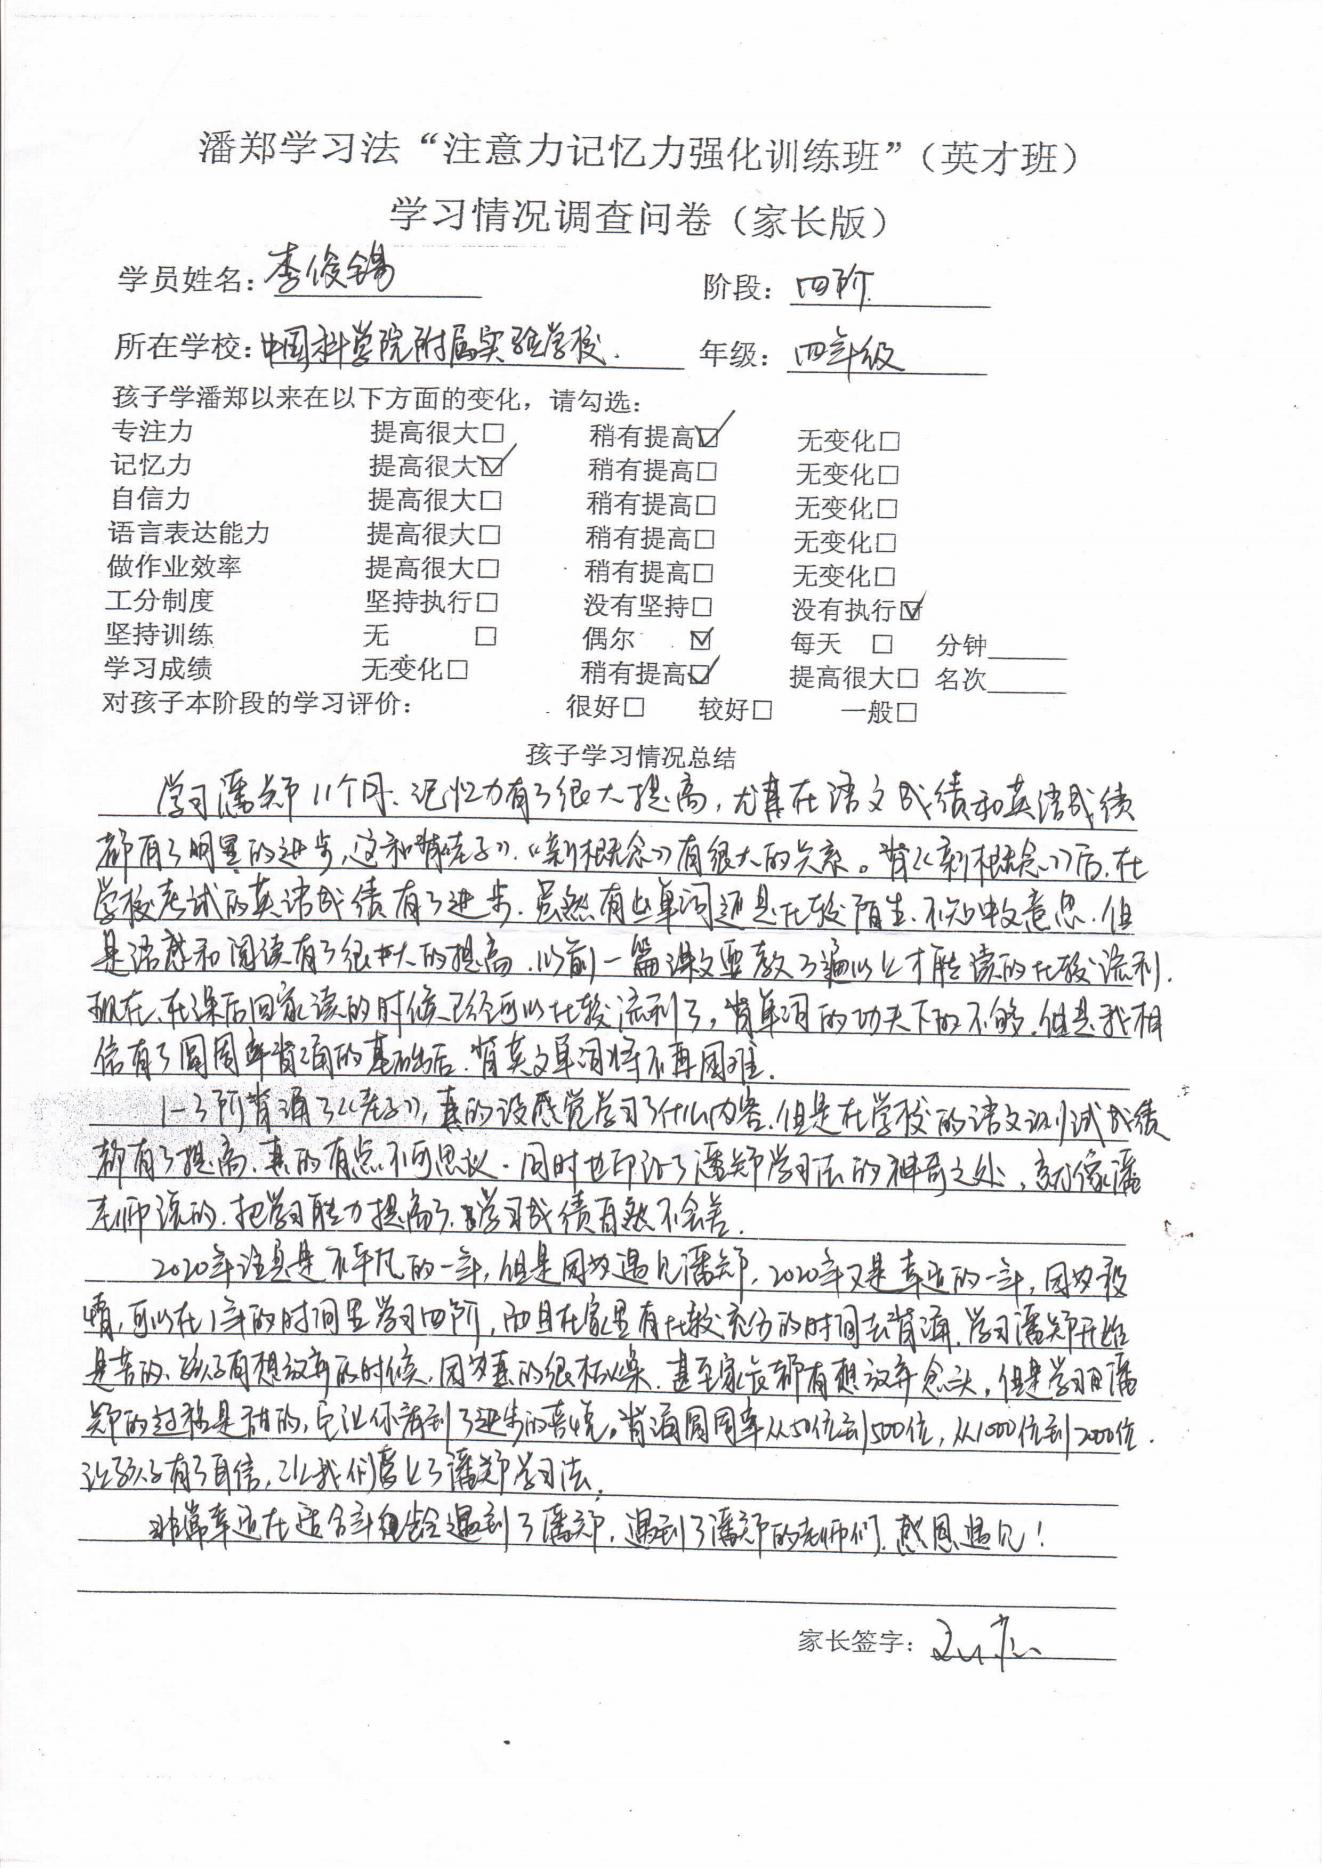 潘郑学习法“注意力记忆力强化训练班”（英才班）
学习情况调查问卷（家长版）
学员姓名：李俊锡 阶段：四阶
所在学校：中国科学院附属实验学校. 年级：四年级
孩子学潘郑以来在以下方面的变化，请勾选：
专注力 提高很大□ 稍有提高☑ 无变化□
记忆力 提高很大☑ 稍有提高□ 无变化□
自信力 提高很大□ 稍有提高□ 无变化□
语言表达能力 提高很大□ 稍有提高□ 无变化□
做作业效率 提高很大□ 稍有提高□ 无变化□
工分制度 坚持执行□ 没有坚持□ 没有执行☑
坚持训练 无 □ 偶尔 ☑ 每天 □ 分钟______
学习成绩 无变化□ 稍有提高☑ 提高很大□ 名次______
对孩子本阶段的学习评价： 很好□ 较好□ 一般□
孩子学习情况总结
学习潘郑11个月、记忆力有了很大提高，尤其在语文成绩和英语成绩
都有了明显的进步、这和背《老子》、《新概念》有很大的关系。背《新概念》后、在
学校考试的英语成绩有了进步. 虽然有些单词还是比较陌生、不知中文意思. 但
是语感和阅读有了很大的提高. 以前一篇课文要教3遍以上才能读的比较流利.
现在、在课后回家读的时候、已经可以比较流利了，背单词的功夫下的不够. 但是我相
信有了圆周率背诵的基础后. 背英文单词将不再困难.
1-3阶背诵了《老子》，真的没感觉学习了什么内容. 但是在学校的语文测试成绩
都有了提高、真的有点不可思议. 同时也印证了潘郑学习法的神奇之处，就像潘
老师说的. 把学习能力提高了. 学习成绩自然不会差.
2020年注定是不平凡的一年，但是因为遇见潘郑，2020年又是幸运的一年，因为疫
情，可以在1年的时间里学习四阶，而且在家里有比较充分的时间去背诵. 学习潘郑开始
是苦的、孩子有想放弃的时候、因为真的很枯燥. 甚至家长都有想放弃念头，但是学习潘
郑的过程是甜的，它让你看到了进步的喜悦。背诵圆周率从50位到500位，从1000位到2000位.
让孩子有了自信，让我们爱上了潘郑学习法.
非常幸运在适合年龄遇到了潘郑，遇到了潘郑的老师们. 感恩遇见！
家长签字：